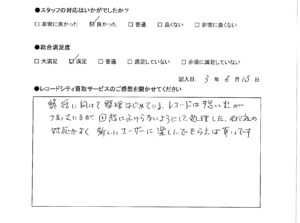 ●スタッフの対応はいかがでしたか？
□非常に良かった ☑良かった □普通 □良くない □非常に良くない
●総合満足度
□大満足 ☑満足 □普通 □満足していない □非常に満足していない
記入日 3年6月13日
●レコードシティ買取サービスのご感想を聞かせてください
終活に向けて整理はじめている。レコードは想い出が
つまっているが 思い にふけらないようにして処理した。
対応がよく 新しいユーザーに楽しんでもらえば幸いです